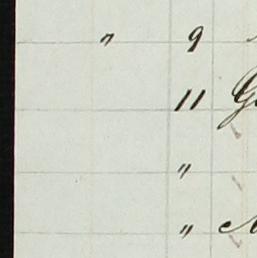 " 9
11 G
"
"